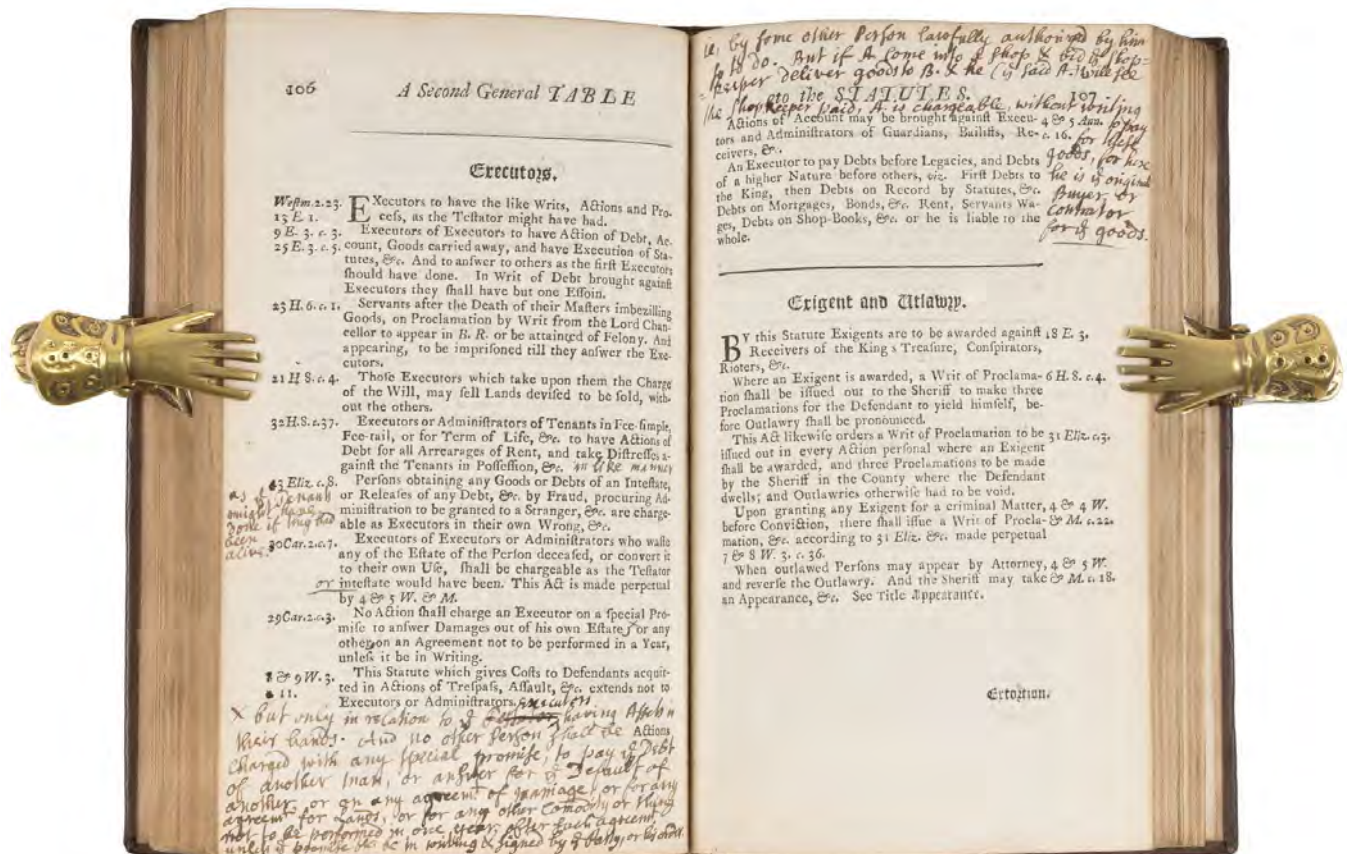 106
A Second General TABLE
Executors.
Westm.2.23.
13 E 1.
EXecutors to have the like Writs, Actions and Pro-
cess, as the Testator might have had.
9 E. 3. c. 3.
25 E. 3. c. 5.
Executors of Executors to have Action of Debt, Ac-
count, Goods carried away, and have Execution of Sta-
tutes, &c. And to answer to others as the first Executors
should have done. In Writ of Debt brought against
Executors they shall have but one Essoin.
23 H. 6. c. 1. Servants after the Death of their Masters imbezilling
Goods, on Proclamation by Writ from the Lord Chan-
cellor to appear in B. R. or be attainted of Felony. And
appearing, to be imprisoned till they answer the Exe-
cutors.
21 H 8. c. 4. Those Executors which take upon them the Charge
of the Will, may sell Lands devised to be sold, with-
out the others.
32 H.8. c.37. Executors or Administrators of Tenants in Fee-simple,
Fee-tail, or for Term of Life, &c. to have Actions of
Debt for all Arrearages of Rent, and take Distresses a-
gainst the Tenants in Possession, &c. in like manner
as
might have
done if
been
alive.
43 Eliz. c. 8. Persons obtaining any Goods or Debts of an Intestate,
or Releases of any Debt, &c. by Fraud, procuring Ad-
ministration to be granted to a Stranger, &c. are charge-
able as Executors in their own Wrong, &c.
30 Car. 2. c. 7. Executors of Executors or Administrators who waste
any of the Estate of the Person deceased, or convert it
to their own Use, shall be chargeable as the Testator
or intestate would have been. This Act is made perpetual
by 4 & 5 W. & M.
29 Car. 2. c. 3. No Action shall charge an Executor on a special Pro-
mise to answer Damages out of his own Estate, or any
other, on an Agreement not to be performed in a Year,
unless it be in Writing.
8 & 9 W. 3.
11.
This Statute which gives Costs to Defendants acquit-
ted in Actions of Trespass, Assault, &c. extends not to
Executors or Administrators.
Executors
X but only in relation to ye having Assets in
their hands. And no other Person shall be
Actions
charged with any special promise, to pay ye Debt
of another man, or answer for ye Default of
another, or on any agreemt of marriage, or for any
agreemt for Lands, or for any other Comodity or thing
not to be performed in one year, after such agreemt,
unless ye promise be in writing & signed by ye Party, or his order
ie, by some other Person lawfully authorized by him
so to do. But if A come into a shop & bid ye shop=
=keeper deliver goods to B. & he (ye said A.) will see
to the STATUTES. 107
the shopkeeper paid, A. is chargeable, without writing
to pay
for these
goods, for here
he is ye original
Buyer, or
contractor
for ye goods.
Actions of Account may be brought against Execu-
tors and Administrators of Guardians, Bailiffs, Re-
ceivers, &c.
4 & 5 Ann.
c. 16.
An Executor to pay Debts before Legacies, and Debts
of a higher Nature before others, viz. First Debts to
the King, then Debts on Record by Statutes, &c.
Debts on Mortgages, Bonds, &c. Rent, Servants Wa-
ges, Debts on Shop-Books, &c. or he is liable to the
whole.
Exigent and Utlawry.
BY this Statute Exigents are to be awarded against 18 E. 3.
Receivers of the King's Treasure, Conspirators,
Rioters, &c.
Where an Exigent is awarded, a Writ of Proclama- 6 H. 8. c. 4.
tion shall be issued out to the Sheriff to make three
Proclamations for the Defendant to yield himself, be-
fore Outlawry shall be pronounced.
This Act likewise orders a Writ of Proclamation to be 31 Eliz. c. 3.
issued out in every Action personal where an Exigent
shall be awarded, and three Proclamations to be made
by the Sheriff in the County where the Defendant
dwells; and Outlawries otherwise had to be void.
Upon granting any Exigent for a criminal Matter, 4 & 4 W.
before Conviction, there shall issue a Writ of Procla- & M. c. 22.
mation, &c. according to 31 Eliz. &c. made perpetual
7 & 8 W. 3. c. 36.
When outlawed Persons may appear by Attorney, 4 & 5 W.
and reverse the Outlawry. And the Sheriff may take & M. c. 18.
an Appearance, &c. See Title Appearance.
Extortion.